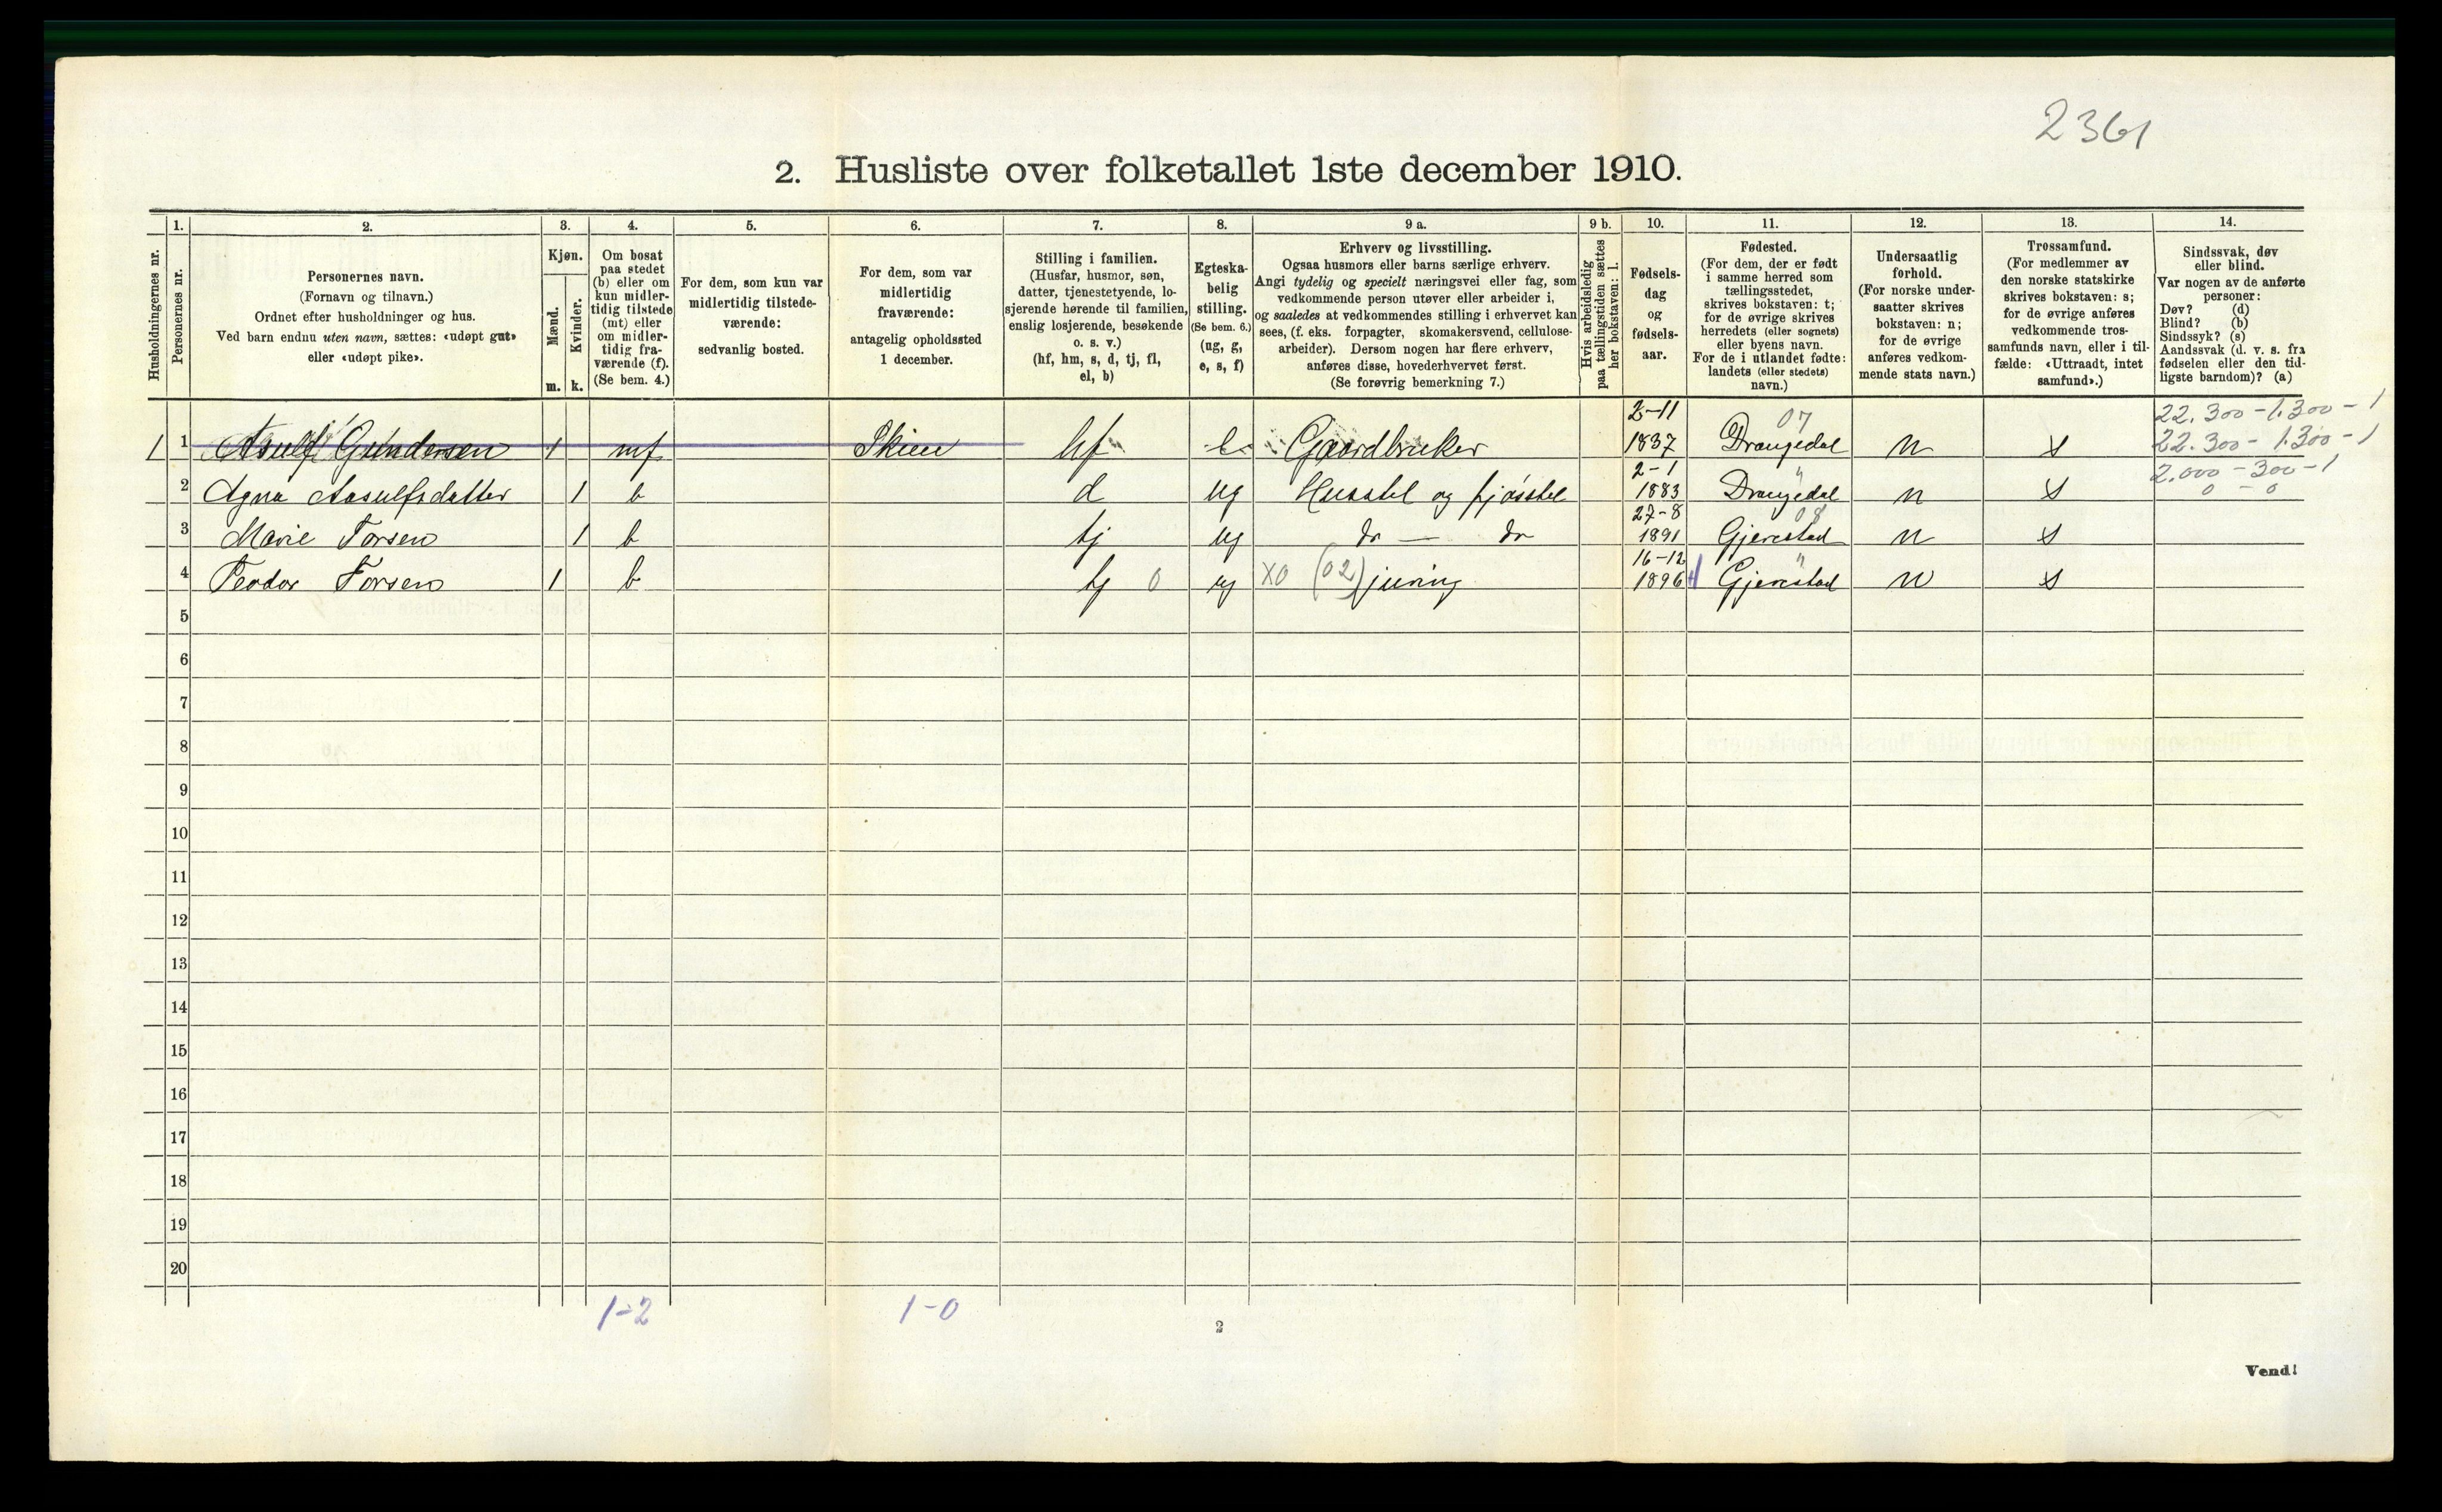 2361
2. Husliste over folketallet 1ste december 1910.
Husholdningernes nr.
1.
Personernes nr.
2.
Personernes navn.
(Fornavn og tilnavn.)
Ordnet efter husholdninger og hus.
Ved barn endnu uten navn, sættes: «udøpt gut»
eller «udøpt pike».
3.
Kjøn.
Mænd.
Kvinder.
m. k.
4.
Om bosat
paa stedet
(b) eller om
kun midler-
tidig tilstede
(mt) eller
om midler-
tidig fra-
værende (f).
(Se bem. 4.)
5.
For dem, som kun var
midlertidig tilstede-
værende:
sedvanlig bosted.
6.
For dem, som var
midlertidig
fraværende:
antagelig opholdssted
1 december.
7.
Stilling i familien.
(Husfar, husmor, søn,
datter, tjenestetyende, lo-
sjerende hørende til familien,
enslig losjerende, besøkende
o. s. v.)
(hf, hm, s, d, tj, fl,
el, b)
8.
Egteska-
belig
stilling.
(Se bem. 6.)
(ug, g,
e, s, f)
9 a.
Erhverv og livsstilling.
Ogsaa husmors eller barns særlige erhverv.
Angi tydelig og specielt næringsvei eller fag, som
vedkommende person utøver eller arbeider i,
og saaledes at vedkommendes stilling i erhvervet kan
sees, (f. eks. forpagter, skomakersvend, cellulose-
arbeider). Dersom nogen har flere erhverv,
anføres disse, hovederhvervet først.
(Se forøvrig bemerkning 7.)
9 b.
Hvis arbeidsledig
paa tællingstiden sættes
her bokstaven: l.
10.
Fødsels-
dag
og
fødsels-
aar.
11.
Fødested.
(For dem, der er født
i samme herred som
tællingsstedet,
skrives bokstaven: t;
for de øvrige skrives
herredets (eller sognets)
eller byens navn.
For de i utlandet fødte:
landets (eller stedets)
navn.)
12.
Undersaatlig
forhold.
(For norske under-
saatter skrives
bokstaven: n;
for de øvrige
anføres vedkom-
mende stats navn.)
13.
Trossamfund.
(For medlemmer av
den norske statskirke
skrives bokstaven: s;
for de øvrige anføres
vedkommende tros-
samfunds navn, eller i til-
fælde: «Uttraadt, intet
samfund».)
14.
Sindssvak, døv
eller blind.
Var nogen av de anførte
personer:
Døv? (d)
Blind? (b)
Sindssyk? (s)
Aandssvak (d. v. s. fra
fødselen eller den tid-
ligste barndom)? (a)
1 1 Asulf Gundersen 1 mf Skien hf e Gaardbruker 2-11 1837 07 Drangedal n s 22.300 - 1.300 - 1
22.300 - 1.300 - 1
2 Agna Aasulfsdatter 1 b d ug Husstel og fjøsstel 2-1 1883 " Drangedal n s 2.000 - 300 - 1
0 - 0
3 Marie Torsen 1 b tj ug do — do 27-8 1891 08 Gjerestad n s
4 Teodor Torsen 1 b tj 0 ug X0 (02) juring 16-12 1896 " Gjerestad n s
5
6
7
8
9
10
11
12
13
14
15
16
17
18
19
20
1-2 1-0
2
Vend!